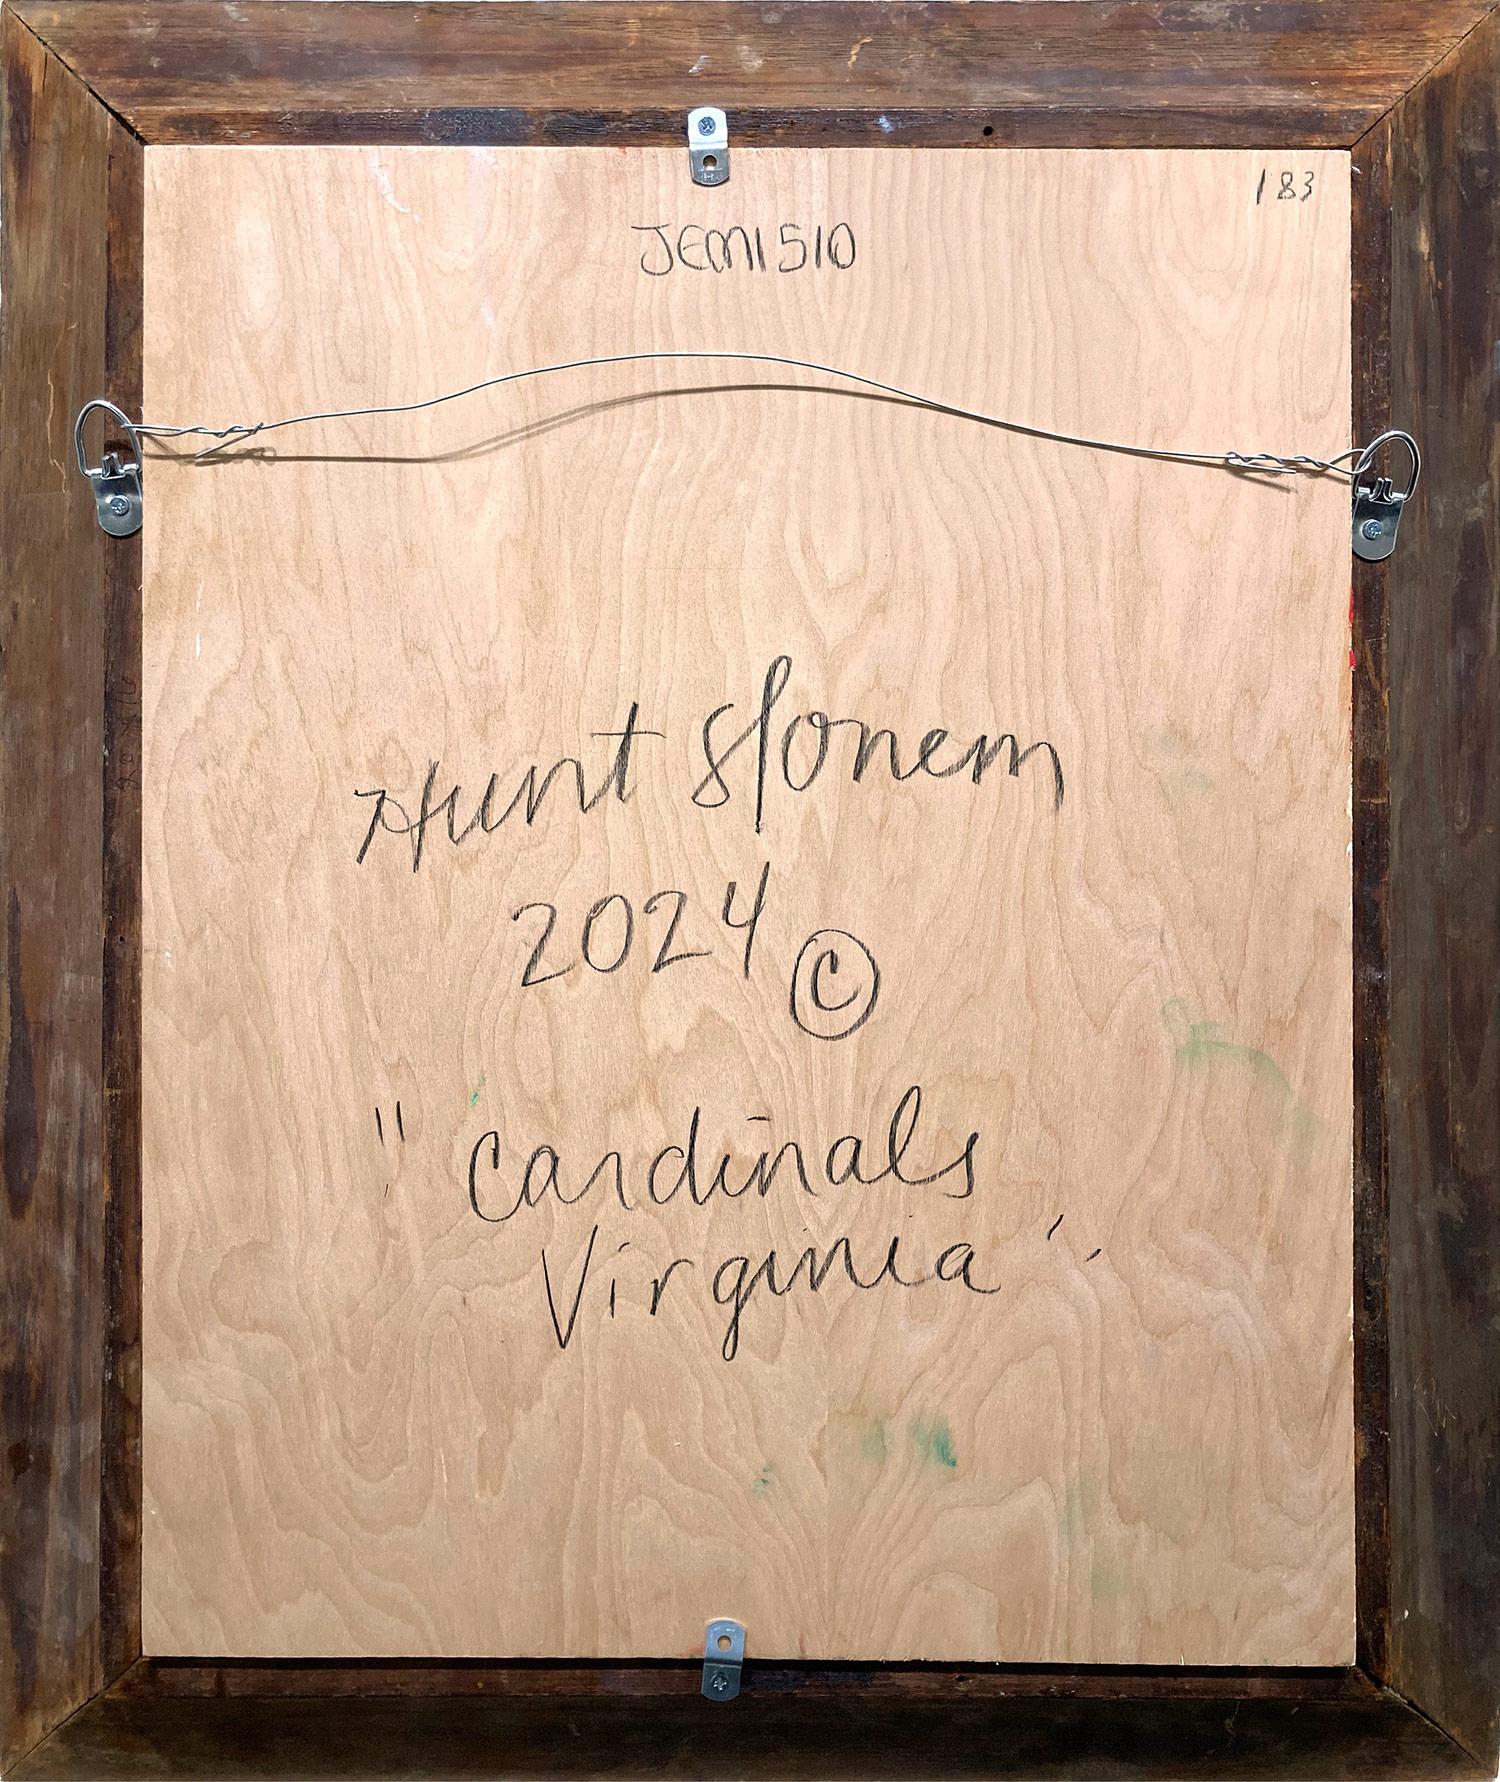 183
JEM1510
Hunt Slonem
2024 ©
"Cardinals
Virginia"